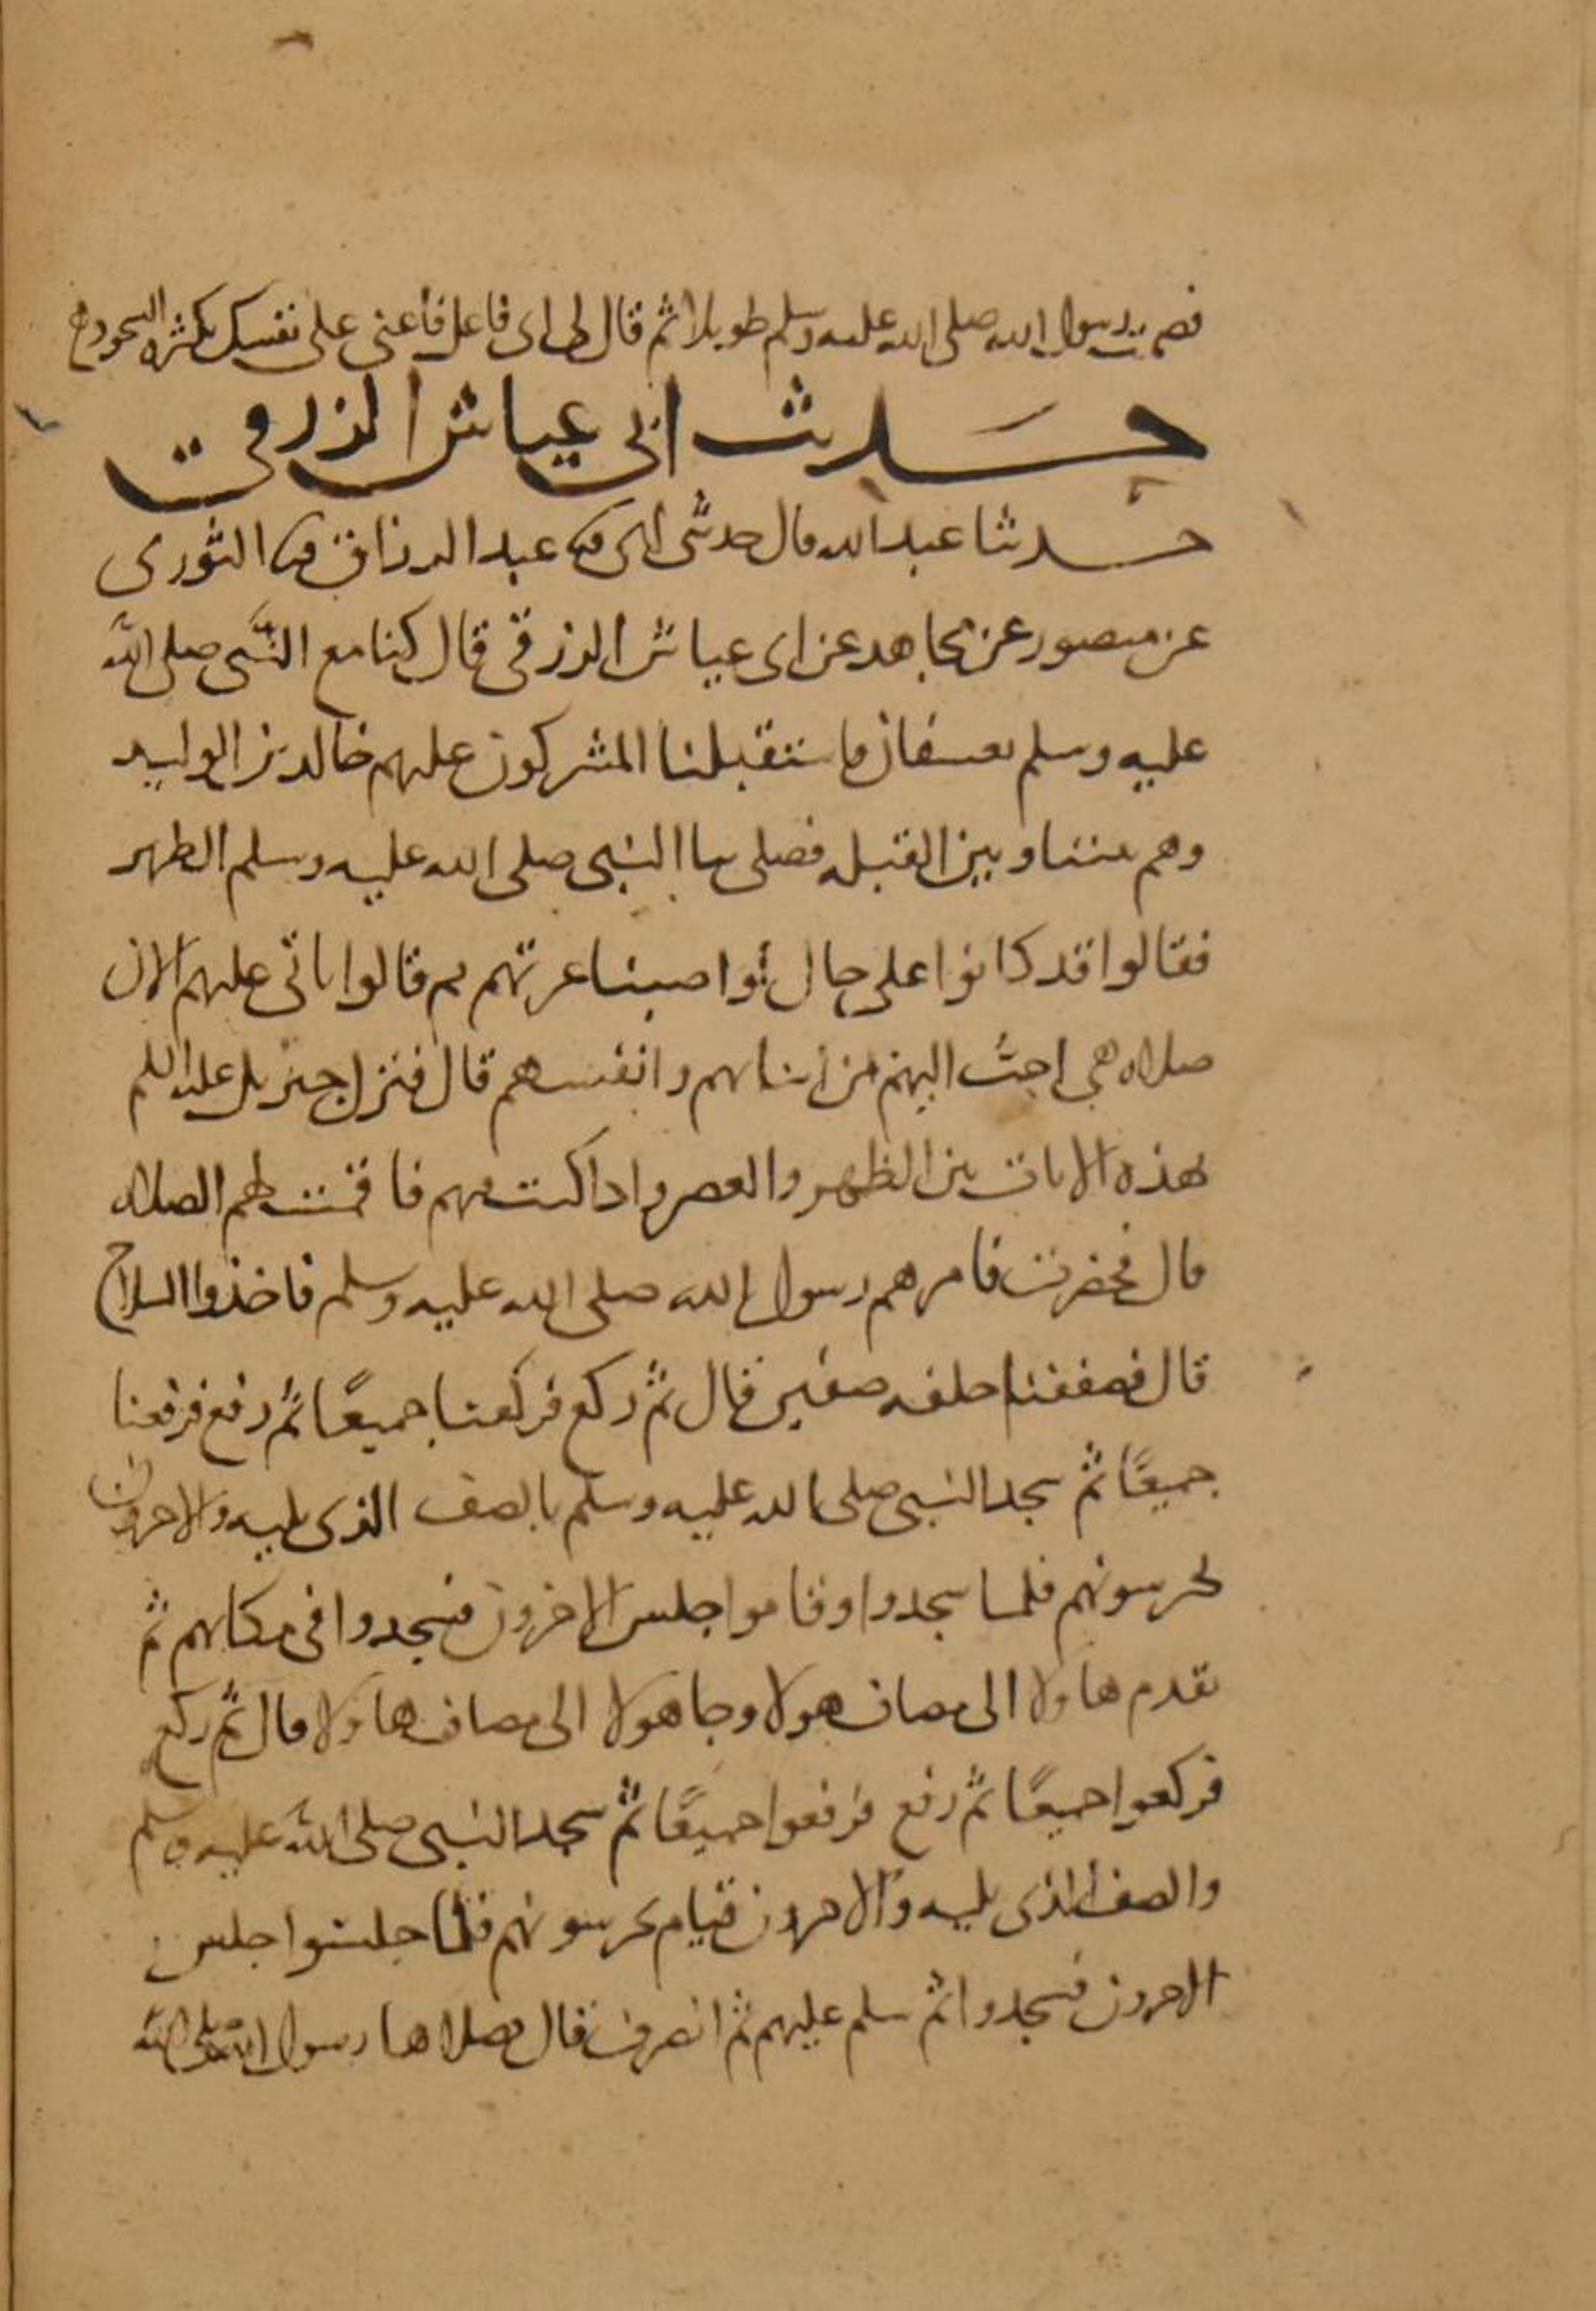 فصمت رسول الله صلى الله عليه وسلم طويلا ثم قال لي اني فاعل فأعني على نفسك بكثره السجود
حديث ابي عياش الزرقي
حدثنا عبد الله قال حدثني ابي ثنا عبد الرزاق ثنا الثوري
عن منصور عن مجاهد عن ابي عياش الزرقي قال كنا مع النبي صلى الله
عليه وسلم بعسفان فاستقبلنا المشركون عليهم خالد بن الوليد
وهم بيننا وبين القبله فصلى بنا النبي صلى الله عليه وسلم الظهر
فقالوا قد كانوا على حال لو اصبنا غرتهم ثم قالوا تاتي عليهم الان
صلاه هي احب اليهم من ابنايهم وانفسهم قال فنزل جبريل عليه السلم
بهذه الايات بين الظهر والعصر واذا كنت فيهم فاقمت لهم الصلاه
قال فحضرت فامرهم رسول الله صلى الله عليه وسلم فاخذوا السلاح
قال فصففنا خلفه صفين قال ثم ركع فركعنا جميعًا ثم رفع فرفعنا
جميعًا ثم سجد النبي صلى الله عليه وسلم بالصف الذي يليه والاخرون
يحرسونهم فلما سجدوا وقاموا جلس الاخرون فسجدوا في مكانهم ثم
تقدم هاولا الى مصاف هولا وجا هولا الى مصاف هاولا قال ثم ركع
فركعوا جميعًا ثم رفع فرفعوا جميعًا ثم سجد النبي صلى الله عليه وسلم
والصف الذي يليه والاخرون قيام يحرسونهم فلما جلسوا جلس
الاخرون فسجدوا ثم سلم عليهم ثم انصرف قال فصلاها رسول الله صلى الله